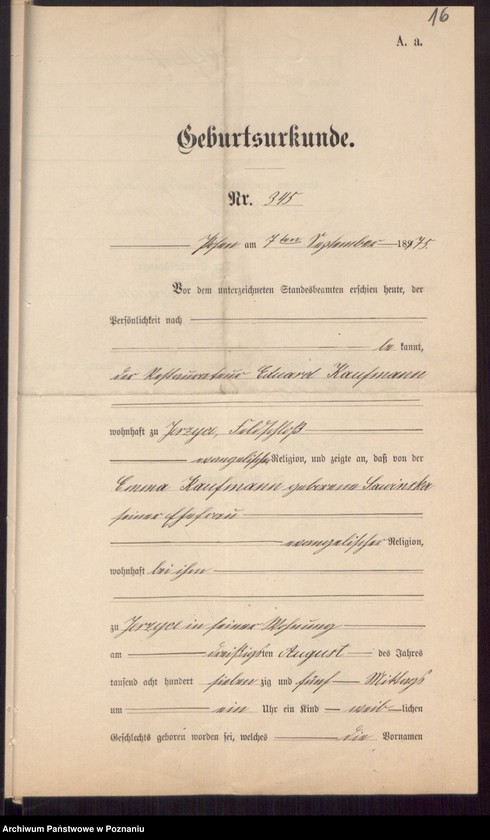 16
A. a.
Geburtsurkunde.
Nr. 345
Posen am 7ten September 1875.
Vor dem unterzeichneten Standesbeamten erschien heute, der
Persönlichkeit nach
be kannt,
der Restaurateur Eduard Kaufmann
wohnhaft zu Jerzyce, Feldschloß
evangelischer Religion, und zeigte an, daß von der
Emma Kaufmann geborene Sawinska
seiner Ehefrau
evangelischer Religion,
wohnhaft bei ihm
zu Jerzyce in seiner Wohnung
am dreißigsten August des Jahres
tausend acht hundert sieben zig und fünf Mittags
um ein Uhr ein Kind weib lichen
Geschlechts geboren worden sei, welches die Vornamen
Archiwum Państwowe w Poznaniu